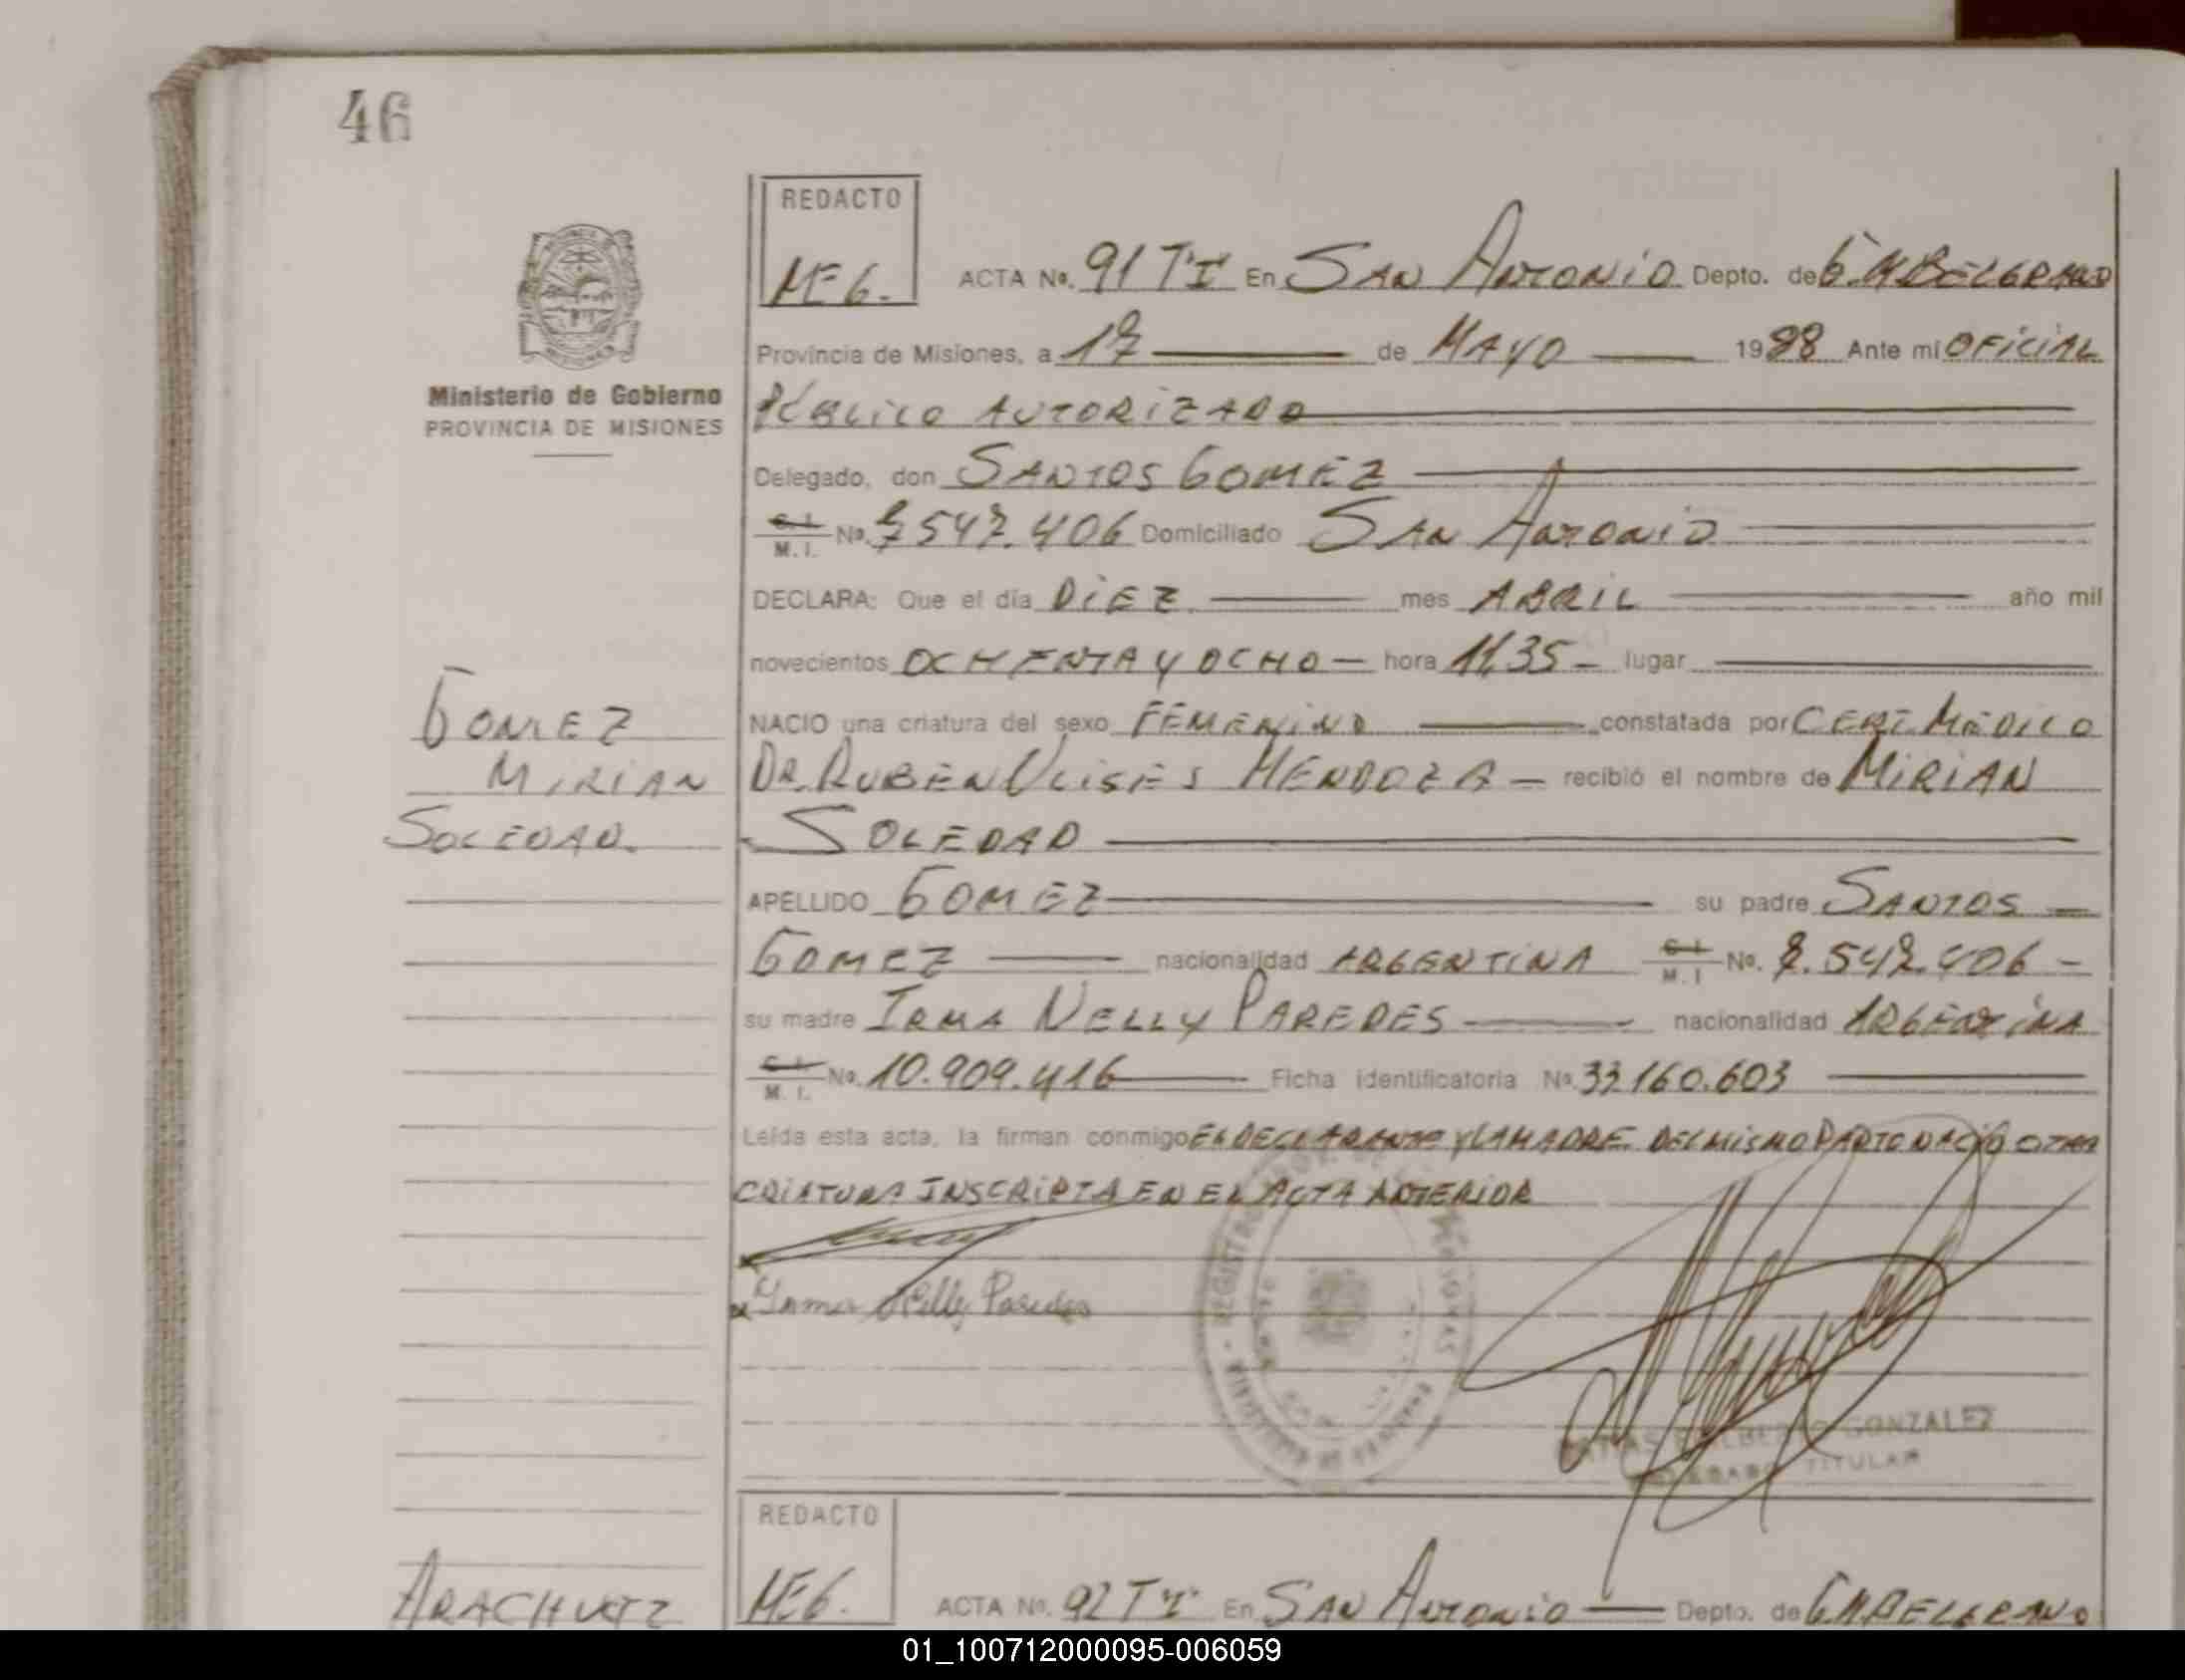 46
REDACTO
ME6.
ACTA No. 91 TºI En SAN ANTONIO Depto. de G.M.BELGRANO
Provincia de Misiones, a 17 de MAYO 1988 Ante mi OFICIAL
Ministerio de Gobierno
PROVINCIA DE MISIONES
PÚBLICO AUTORIZADO
Delegado, don SANTOS GOMEZ
C. I. M. I. No. 7.547.406 Domiciliado SAN ANTONIO
DECLARA: Que el día DIEZ mes ABRIL año mil
novecientos OCHENTA Y OCHO hora 11,35 lugar
GOMEZ
MIRIAN
SOLEDAD.
NACIO una criatura del sexo FEMENINO constatada por CERT. MEDICO
DR. RUBEN ULISES MENDOZA recibió el nombre de MIRIAN
SOLEDAD
APELLIDO GOMEZ su padre SANTOS
GOMEZ nacionalidad ARGENTINA C. I. M. I. No. 7.547.406
su madre IRMA NELLY PAREDES nacionalidad ARGENTINA
C. I. M. I. No. 10.909.416 Ficha identificatoria No. 33.160.603
Leída esta acta, la firman conmigo EL DECLARANTE Y LA MADRE. DEL MISMO PARTO NACIO OTRA
CRIATURA INSCRIPTA EN EL ACTA ANTERIOR
Irma Nelly Paredes
GONZALEZ
TITULAR
REDACTO
ME6.
ARACHUTZ
ACTA No. 92 TºI En SAN ANTONIO Depto. de G.M.BELGRANO
01_100712000095-006059